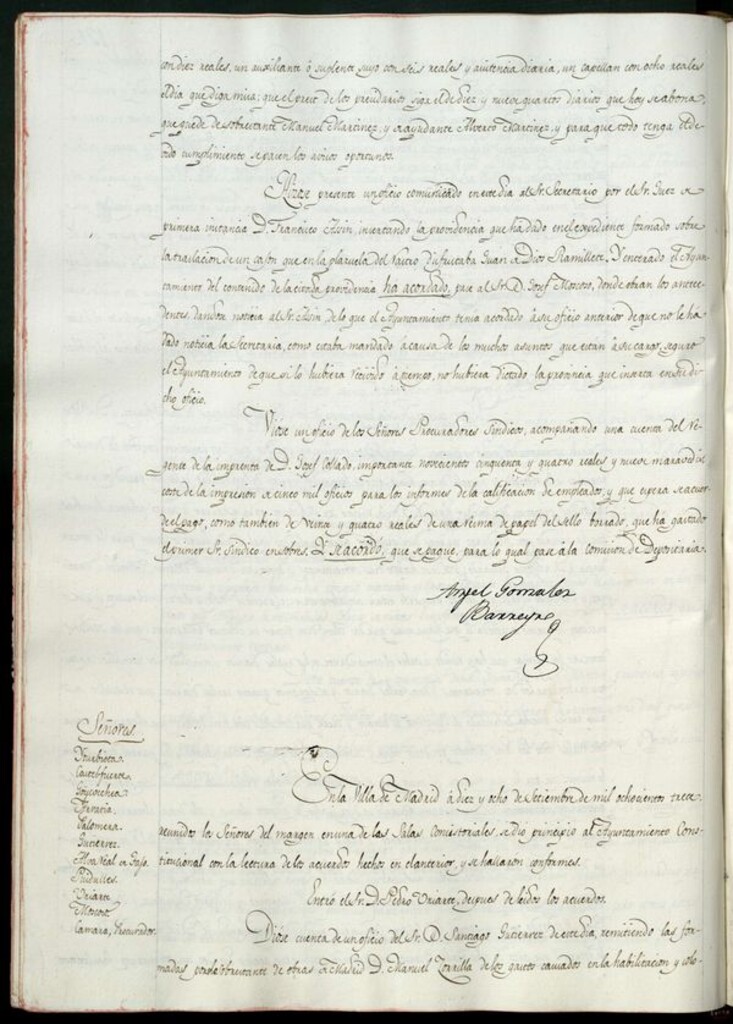 con diez reales, un auxiliante ó suplente suyo con seis reales y asistencia diaria, un capellan con ocho reales
al dia que diga misa; que el prest de los presidarios siga el de diez y nueve quartos diarios que hoy se abona,
que quede de sobrestante Manuel Martinez, y de ayudante Alverto Martinez, y para que todo tenga el de-
vido cumplimiento se pasen los avisos oportunos.
Hízose presente un oficio comunicado en este dia al Sr. Secretario por el Sr. Juez de
primera instancia D. Francisco Aisin, insertando la providencia que ha dado en el expediente formado sobre
la traslacion de un cajon que en la plazuela del Rastro disfrutaba Juan de Dios Ramillete, Y enterado el Ayun-
tamiento del contenido de la citada providencia ha acordado, pase al Sr. D. Josef Moscoso, donde obran los antece-
dentes, dandose noticia al Sr. Aisin, de lo que el Ayuntamiento tenia acordado á su oficio anterior de que no le ha
dado noticia la Secretaria, como estaba mandado á causa de los muchos asuntos que estan á su cargo, seguro
el Ayuntamiento de que si lo hubiera recivido á tiempo, no hubiera dictado la providencia que inserta en su di-
cho oficio.
Viose un oficio de los Señores Procuradores Sindicos, acompañando una cuenta del Re-
gente de la imprenta de D. Josef Collado, importante novecientos cinquenta y quatro reales y nueve maravedis
coste de la impresion de cinco mil oficios para los informes de la calificacion de empleados, y que espera se acuer-
de el pago, como tambien de veinte y quatro reales de una resma de papel del sello borrado, que ha gastado
el primer Sr. Sindico en sobres. Y se acordó, que se pague, para lo qual pase á la comision de Depositaria.
Angel Gonzalez
Barreyro
Señores.
Yturbieta.
Castelfuerte.
Goycoechea.
Palomera.
Gutierrez.
Uriarte
Moscoso
Camara, Procurador.
En la Villa de Madrid á diez y ocho de Setiembre de mil ochocientos trece.
reunidos los Señores del margen en una de las Salas Consistoriales, se dio principio al Ayuntamiento Cons-
titucional con la lectura de los acuerdos hechos en el anterior, y se hallaron conformes.
Entró el Sr. D. Pedro Uriarte, despues de leidos los acuerdos.
Diose cuenta de un oficio del Sr. D. Santiago Gutierrez de este dia, remitiendo las for-
madas por el sobrestante de obras de Madrid D. Manuel Zorrilla de los gastos causados en la habilitacion y colo-